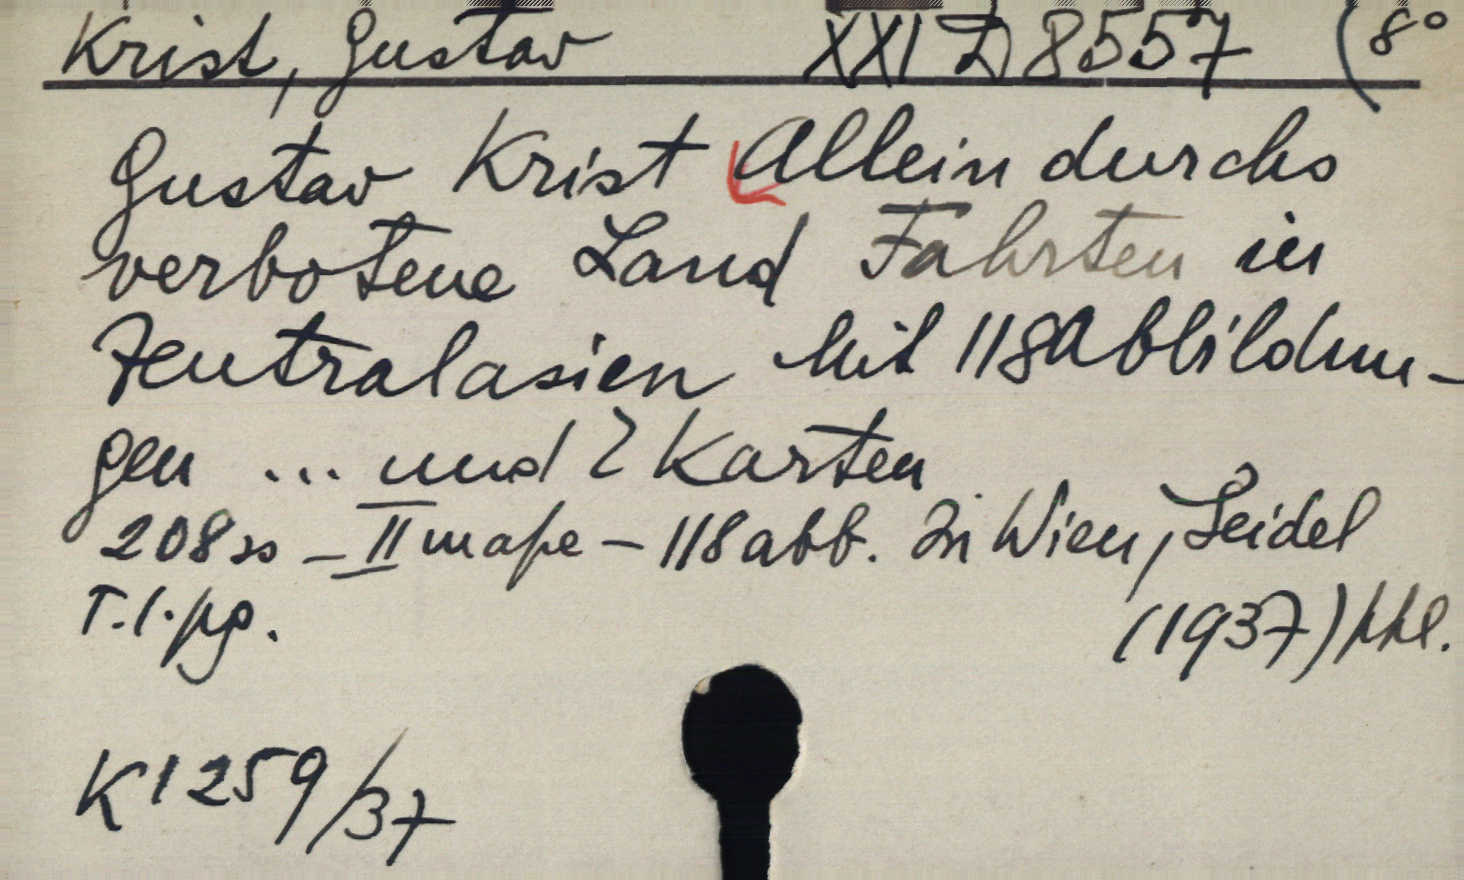 Krist, Gustav XXI D 8557 (8°
Gustav Krist Allein durchs
verbotene Land Fahrten in
Zentralasien Mit 118 Abbildun-
gen ... und 2 Karten
208 ss - II mape - 118 abb. In Wien, Seidel
T. l. pg. (1937)
K1259/37